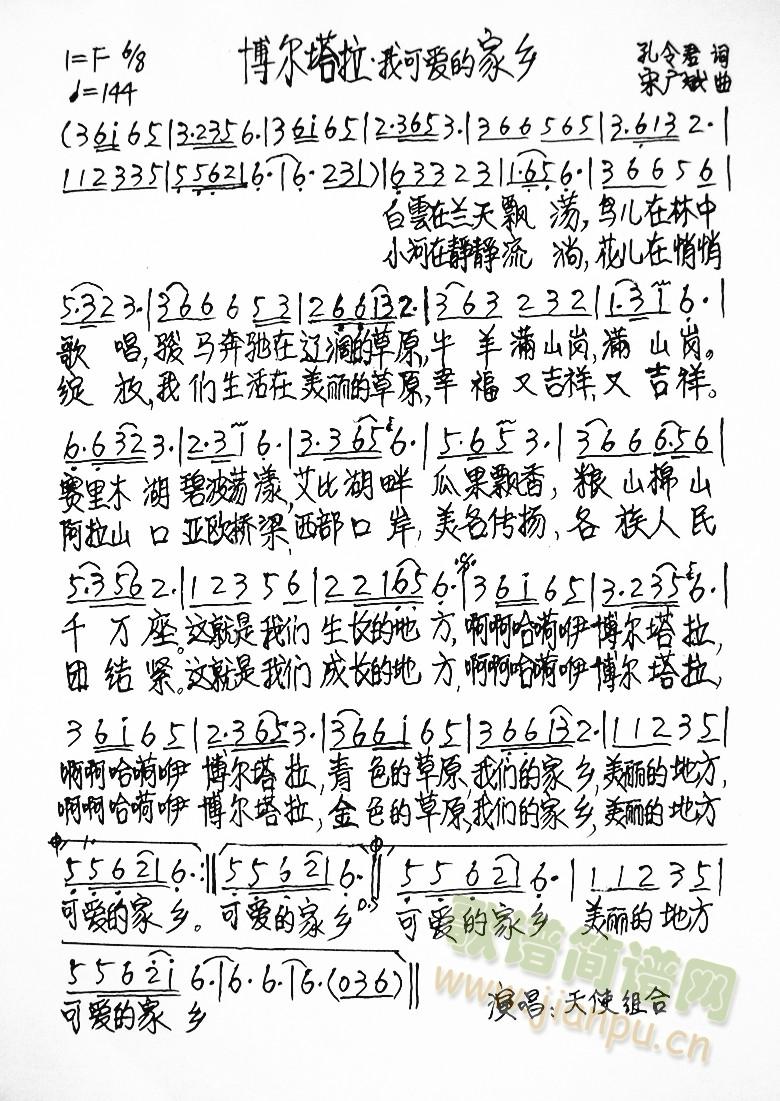 1=F 6/8 博尔塔拉·我可爱的家乡 孔令君 词
♩=144 宋广斌 曲
(3 6 i 6 5|3·235 6·|3 6 i 6 5|2·365 3·|3 6 6 5 6 5|3·613 2·|
1 1 2 3 3 5|5 5 6 2 1|6·|6· 2 3 1)|6 3 3 2 3|1·65 6·|3 6 6 5 6|
白雲在兰天飘 荡,鸟儿在林中
小河在静静流 淌,花儿在悄悄
5·32 3·|3 6 6 6 5 3|2 6 6 1 3 2·|3 6 3 2 3 2|1·3 1 6·|
歌 唱,骏马奔驰在辽阔的草原,牛 羊 满山岗,满 山 岗。
绽 放,我们生活在美丽的草原,幸 福 又吉祥,又 吉 祥。
6·632 3·|2·3 1 6·|3·365 6·|5·65 3·|3 6 6 6·5 6|
赛里木 湖 碧波荡漾,艾比湖畔 瓜果飘香, 粮 山棉 山
阿拉山 口 亚欧桥梁,西部口 岸, 美名传扬, 各 族人 民
5·356 2·|1 2 3 5 6|2 2 1 6 5 6·|3 6 i 6 5|3·235 6·|
千 万 座。这就是我们 生长的地 方,啊啊哈嗬咿博尔塔 拉,
团 结 紧。这就是我们 成长的地 方,啊啊哈嗬咿博尔塔 拉,
3 6 i 6 5|2·365 3·|3 6 6 i 6 5|3 6 6 1 3 2·|1 1 2 3 5|
啊啊哈嗬咿 博尔塔 拉, 青 色的草原,我们的家 乡,美丽的地方,
啊啊哈嗬咿 博尔塔 拉, 金 色的草原,我们的家 乡,美丽的地方
1.
5 5 6 2 1|6·:‖5 5 6 2 1|6·‖5 5 6 2 1|6·|1 1 2 3 5|
可爱的家 乡。可爱的家 乡 D.S 可爱的家 乡 美丽的地方
5 5 6 2 i 6·|6· 6·|6·(0 3 6)‖
可爱的家 乡 演唱:天使组合
歌谱简谱网
www.jianpu.cn